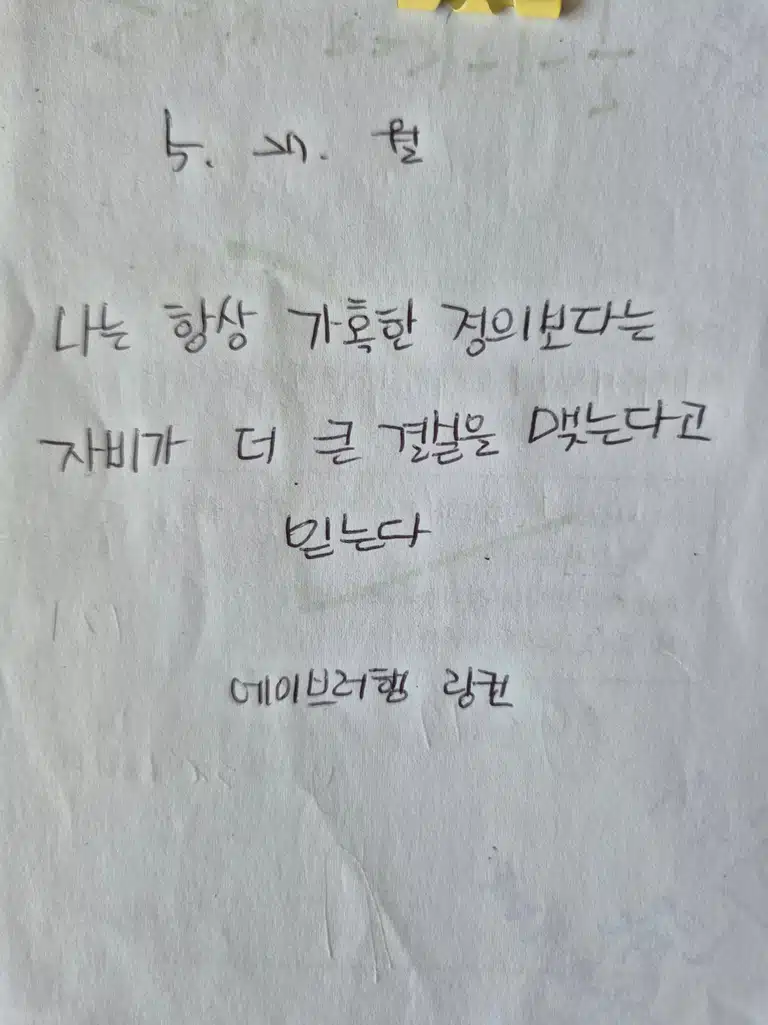 월
나는 항상 가혹한 정의보다는
자비가 더 큰 결실을 맺는다고
믿는다
에이브러햄 링컨